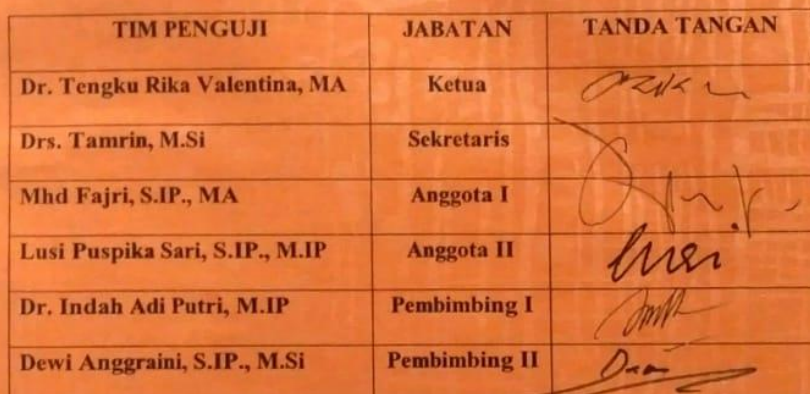 TIM PENGUJI JABATAN TANDA TANGAN
Dr. Tengku Rika Valentina, MA Ketua
Drs. Tamrin, M.Si Sekretaris
Mhd Fajri, S.IP., MA Anggota I
Lusi Puspika Sari, S.IP., M.IP Anggota II
Dr. Indah Adi Putri, M.IP Pembimbing I
Dewi Anggraini, S.IP., M.Si Pembimbing II